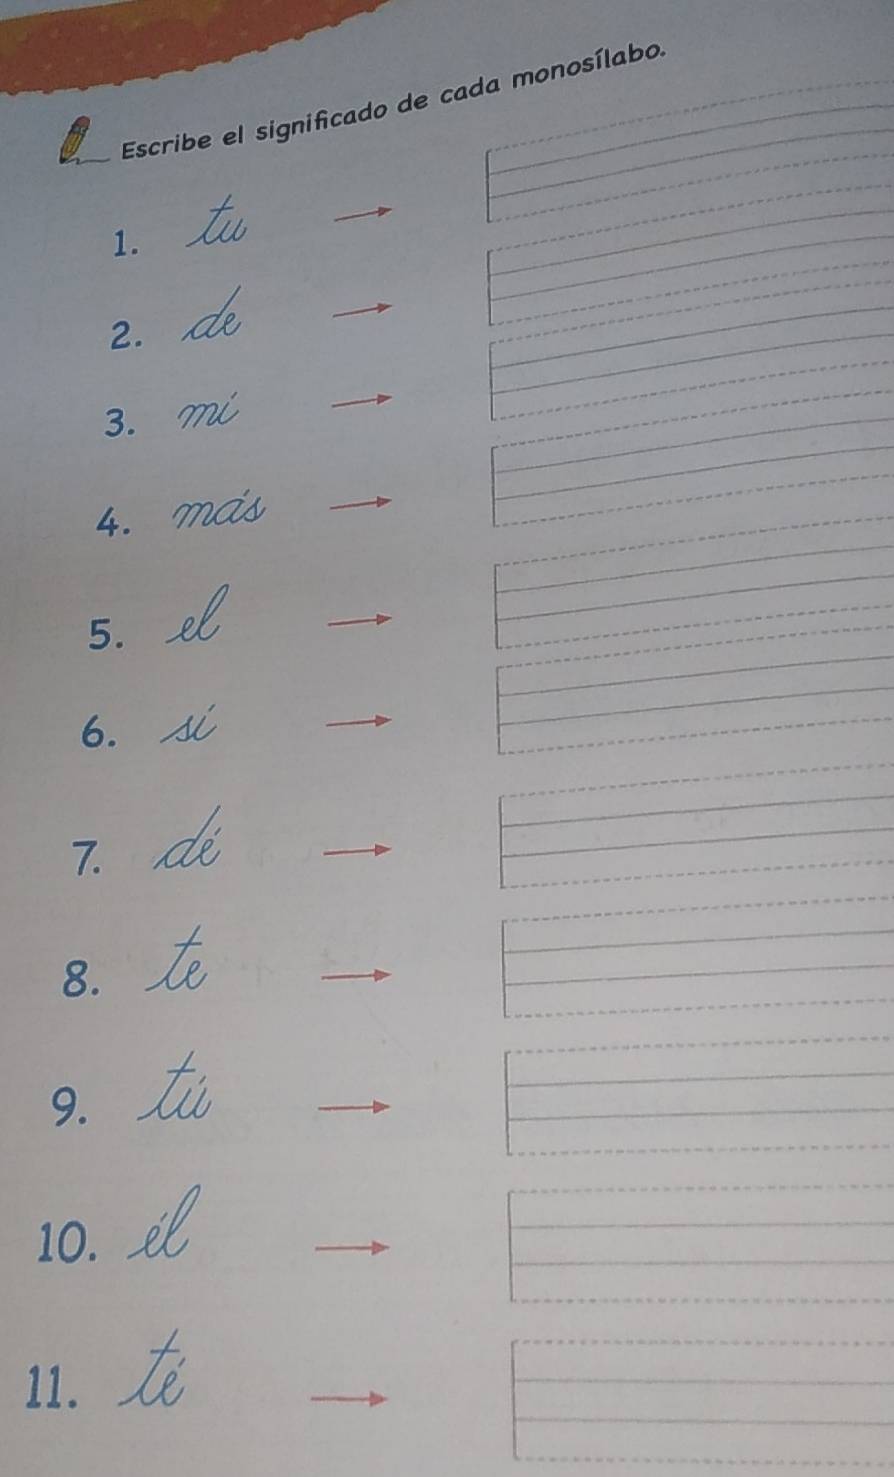 Escribe el significado de cada monosílabo.
1. tu
2. de
3. mi
4. más
5. el
6. sí
7. dé
8. te
9. tú
10. él
11. té